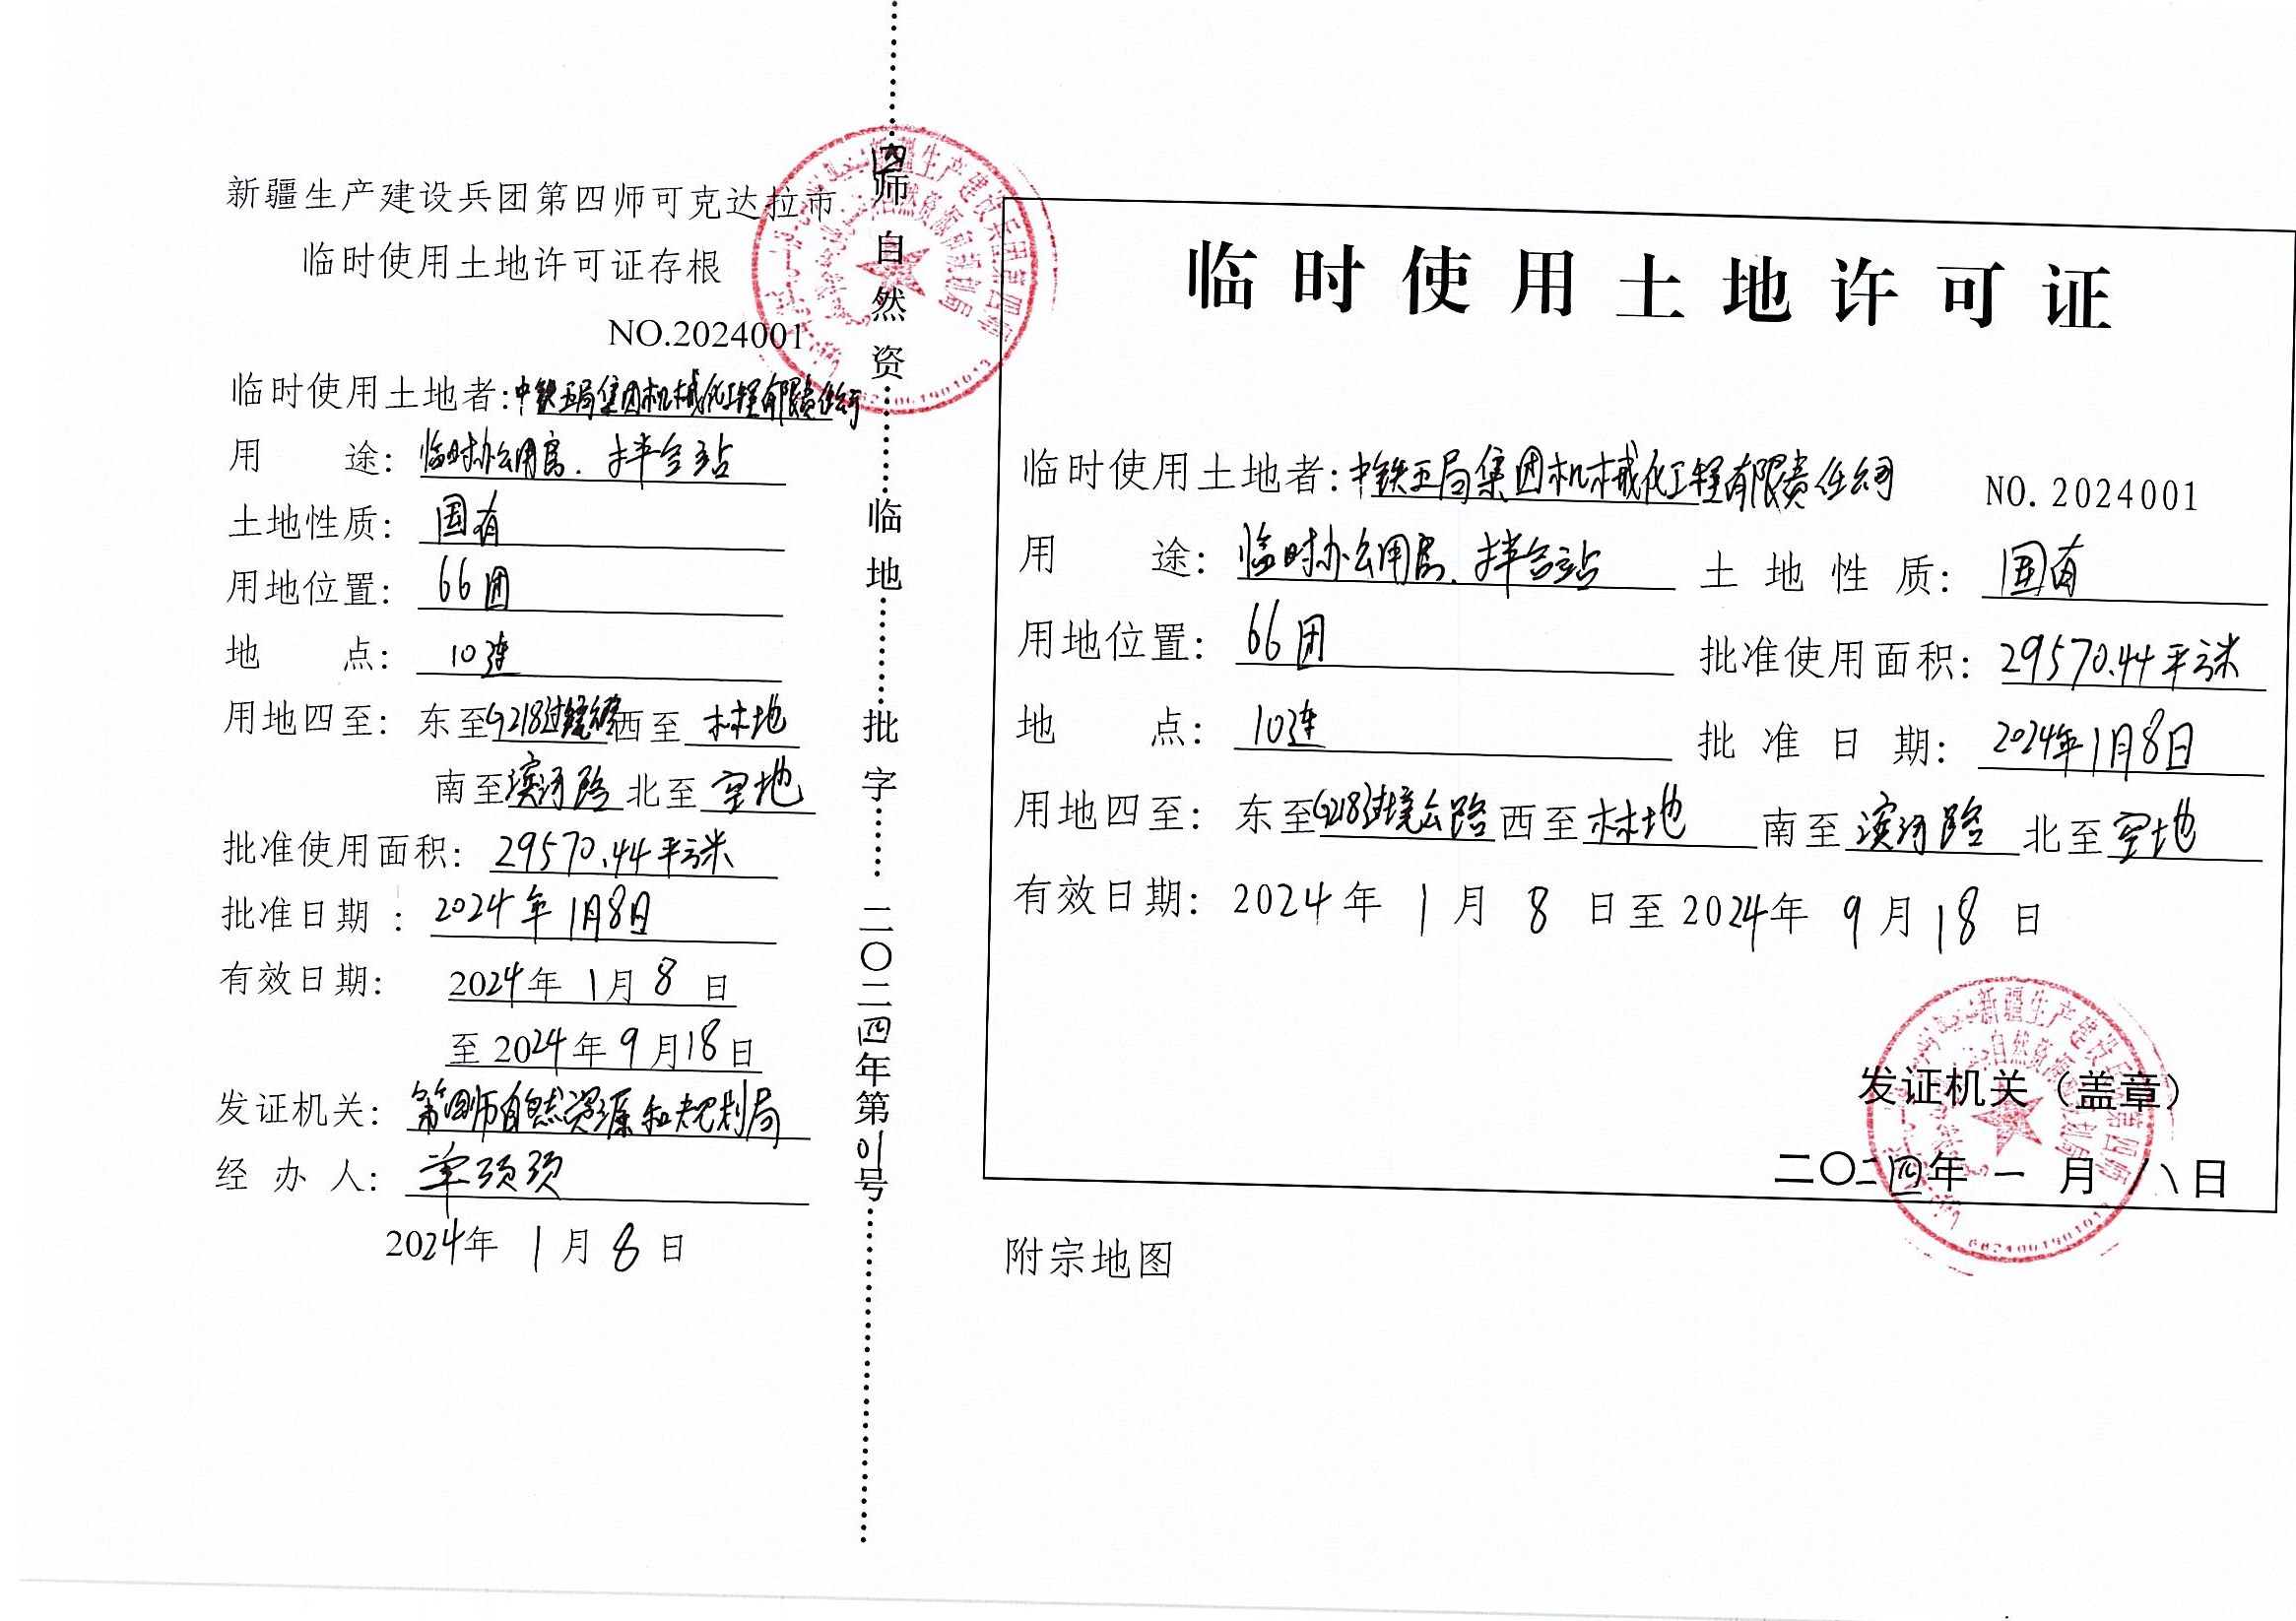 新疆生产建设兵团第四师可克达拉市
临时使用土地许可证存根
NO.2024001
临时使用土地者:中铁五局集团机械化工程有限责任公司
用 途: 临时办公用房、拌合站
土地性质: 国有
用地位置: 66团
地 点: 10连
用地四至: 东至G218过境公路西至 林地
南至滨河路 北至 空地
批准使用面积: 29570.44平方米
批准日期 : 2024年1月8日
有效日期: 2024年 1月 8 日
至2024年9月18日
发证机关: 第四师自然资源和规划局
经 办 人: 单项项
2024年 1月 8 日
四师自然资……临地……批字……二〇二四年第01号
临时使用土地许可证
临时使用土地者:中铁五局集团机械化工程有限责任公司 NO.2024001
用 途: 临时办公用房、拌合站 土地性质: 国有
用地位置: 66团 批准使用面积: 29570.44平方米
地 点: 10连 批准日期: 2024年1月8日
用地四至: 东至G218过境公路 西至 林地 南至滨河路 北至空地
有效日期: 2024年 1 月 8 日至2024年 9 月 18 日
新疆生产建设兵团第四师
自然资源和规划局
发证机关（盖章）
二〇二四年 一 月 八 日
附宗地图